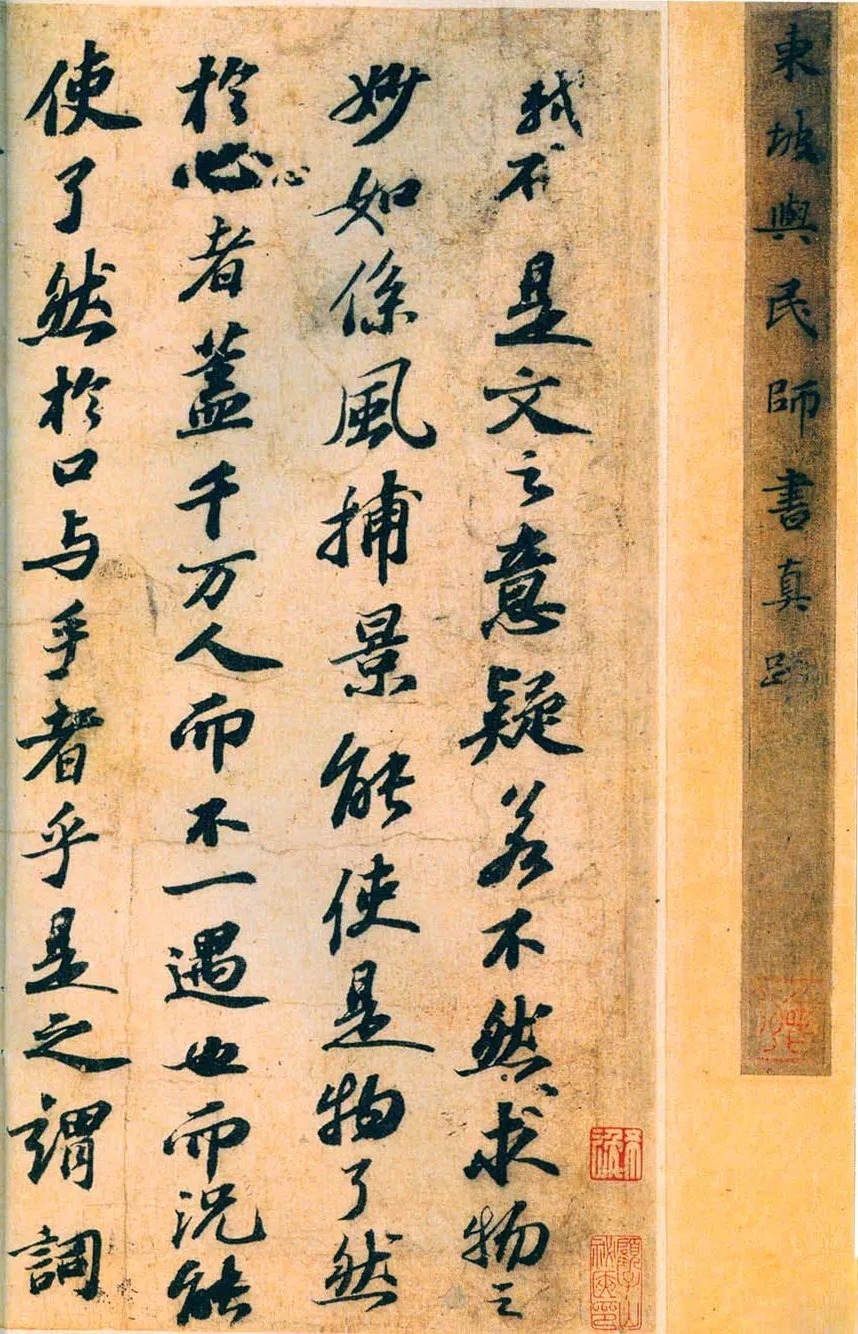 東坡與民師書真
軾不是文之意疑若不然求物之
妙如係風捕景能使是物了然
於心心者蓋千万人而不一遇也而況能
使了然於口与手者乎是之謂詞